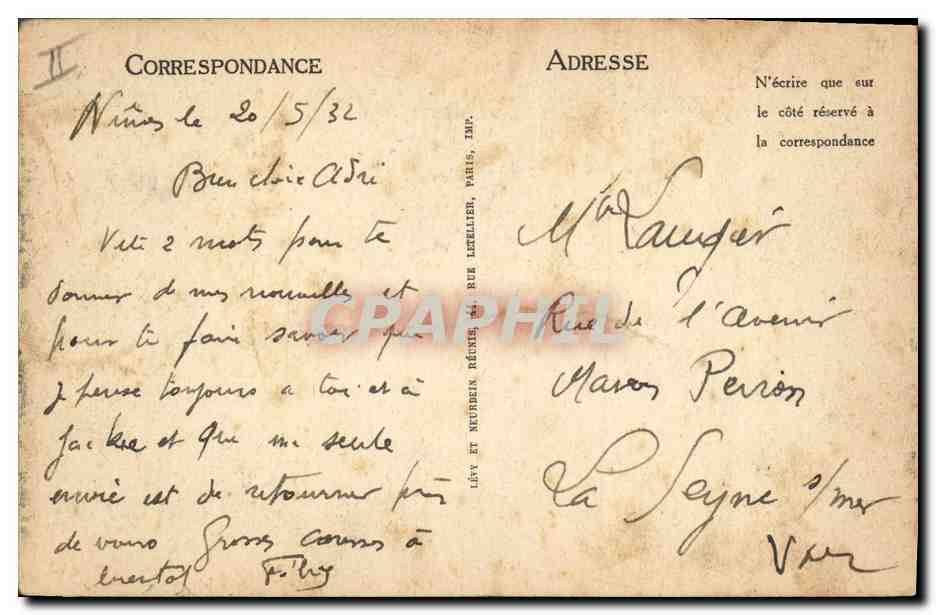 II
CORRESPONDANCE
Nîmes le 20/5/32
Bien chère Adri
Vite 2 mots pour te
donner de mes nouvelles et
pour te faire savoir que
je pense toujours a toi et à
Jackie et que ma seule
envie est de retourner près
de vous Grosses caresses à
LÉVY ET NEURDEIN RÉUNIS, 44, RUE LETELLIER, PARIS, IMP.
ADRESSE
N'écrire que sur
le côté réservé à
la correspondance
Laugier
Rue de l'avenir
Maison Perron
La Seyne s/mer
Var
CPAPHIL